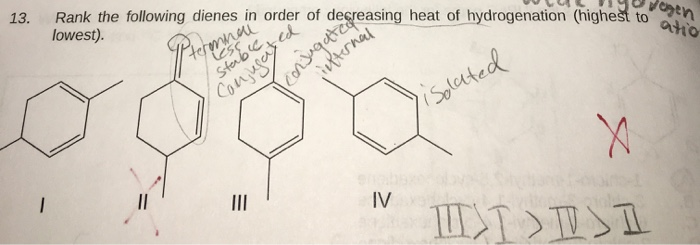 13. Rank the following dienes in order of decreasing heat of hydrogenation (highest to
lowest).
terminal
less
stable
Conjugated
conjugated
internal
isolated
X
I
II
III
IV
III > I > IV > II